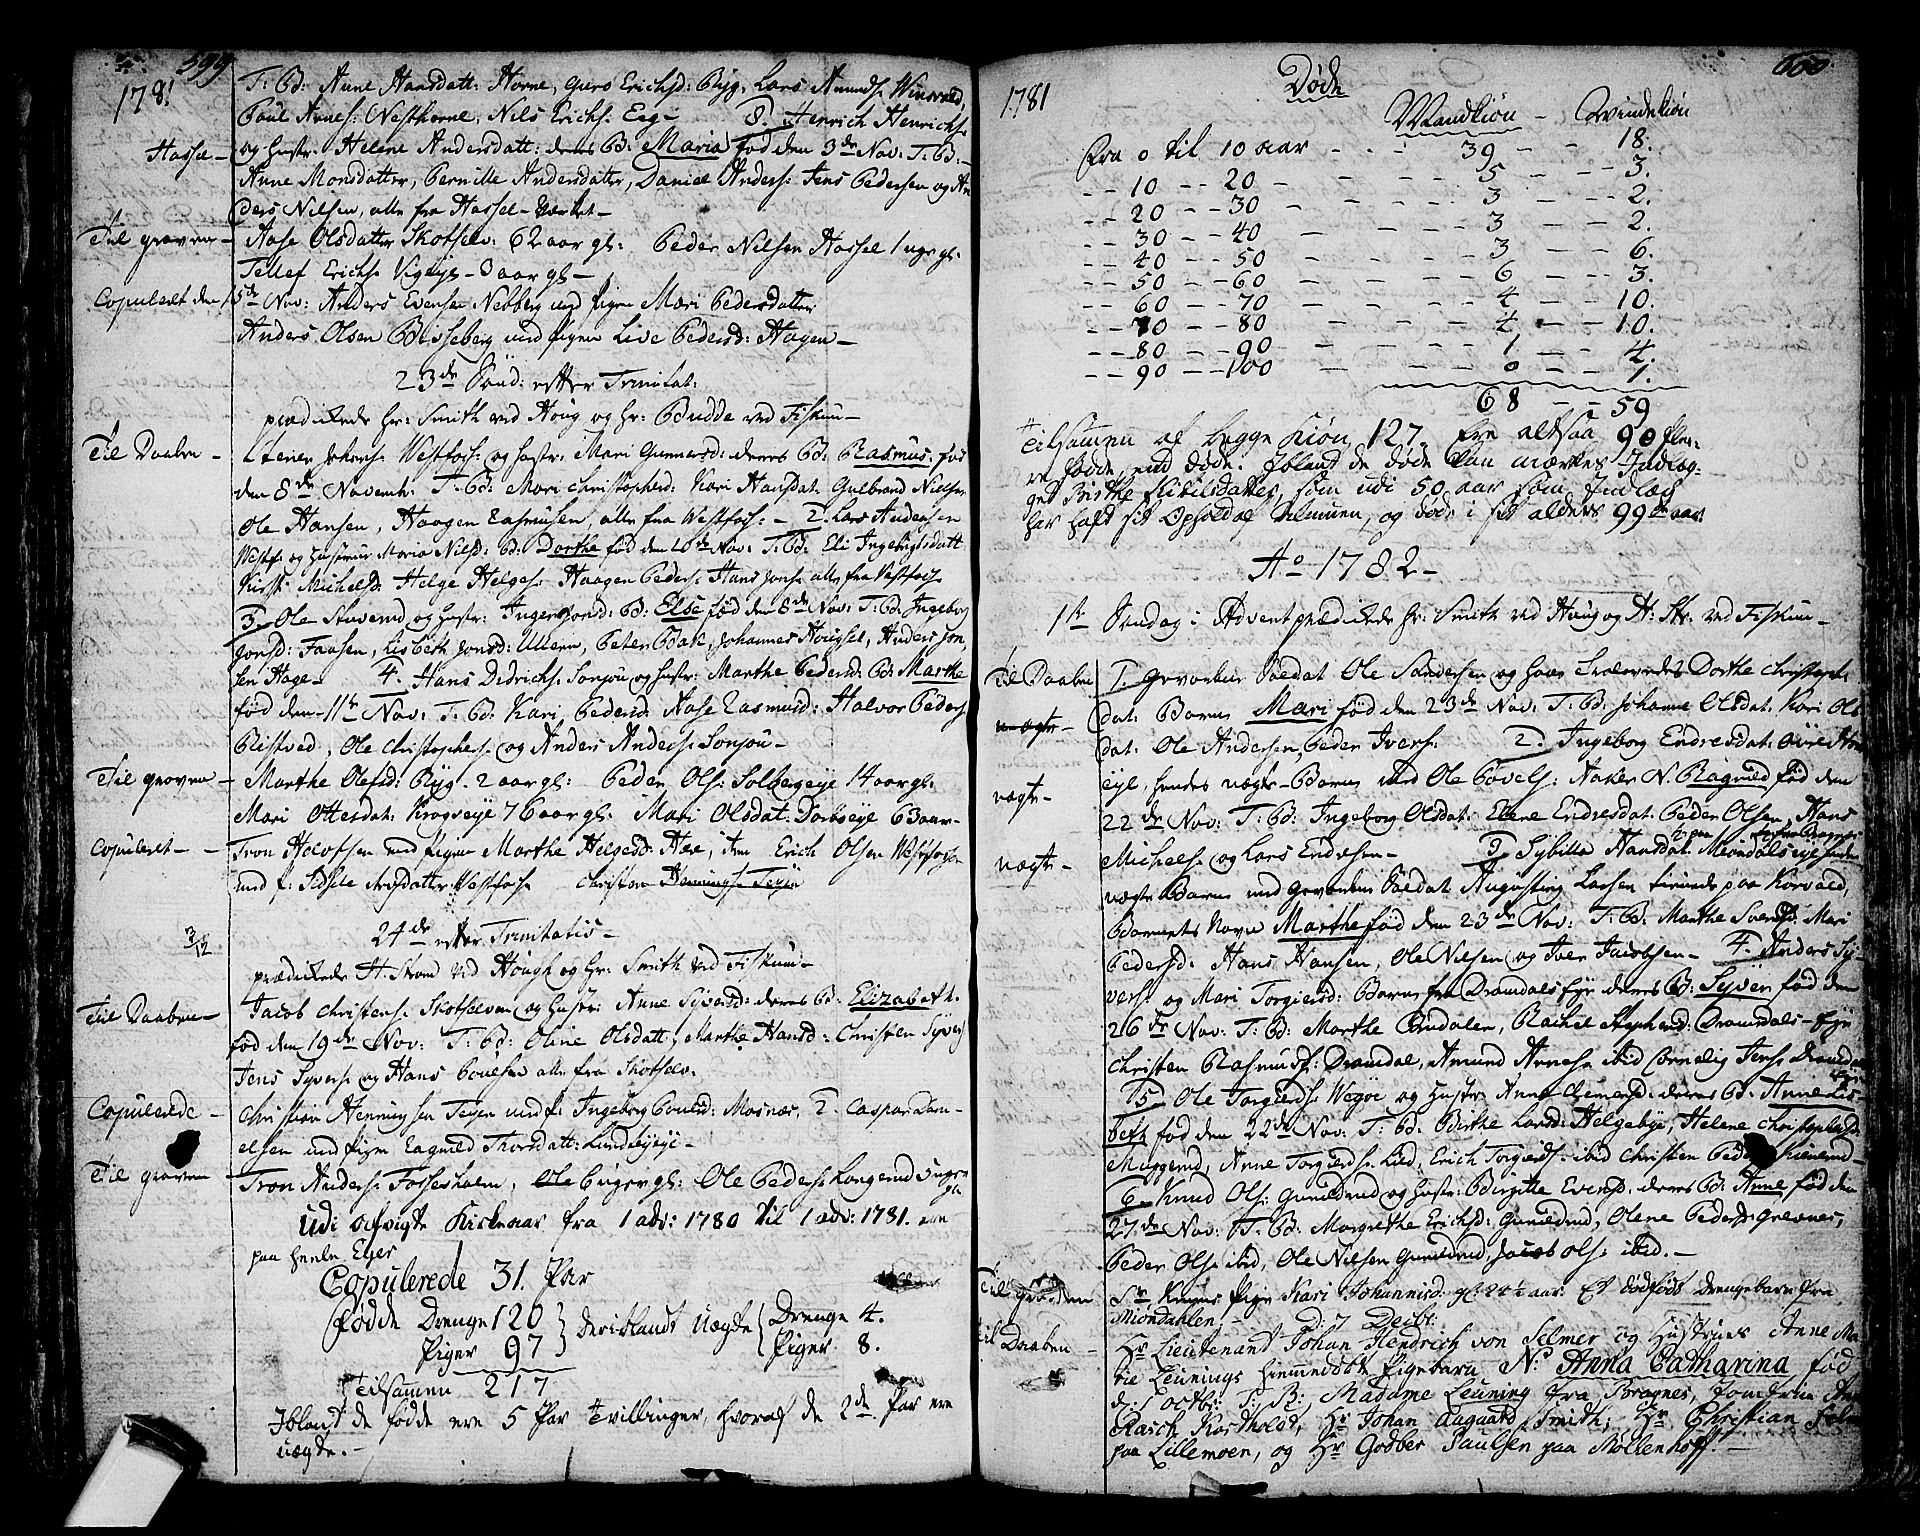 599
1781
T: B: Anne Hansdatt: Horne, Guro Erichsd: Byg, Lars Amunds: Winsvold,
Poul Arnes: Westhorne, Nils Erichs: Eeg - 8. Henrich Henrichs:
Hassel -
og hustr: Helene Andersdatt: deres B: Maria fød den 3de Nov: T: B: -
Anne Monsdatter, Pernille Andersdatter, Daniel Anders: Jens Pedersen og An
ders Nilsen, alle fra Hassel-Værket -
Til graven -
Aase Olsdatter Skotselv: 62 aar gl: Peder Nilsen Hassel 1 uge gl:
Tellef Erichs: - 3 aar gl -
Copuleret den 15de Nov: Anders Evensen Nebberg med pigen Mari Pedersdatter
Anders Olsen Bisseberg med pigen Live Pedersd: Hagen -
23de Sønd: efter Trinitat:
prædikede hr: Smith ved Houg og hr: Budde ved Fiskum -
Til Daaben -
1 Stener Johans: Westfoss: og hustr: Mari Gunnersd: deres B: Rasmus: fød
den 8de Novemb: T: B: Mari Christophersd: Kari Hansdat: Gulbrand Nielsen
Ole Hansen, Haagen Rasmusen, alle fra Westfoss: - 2. Lars Andersen
Westf: og hustrue Maria Nilsd: B: Dorthe fød den 10de Nov: T: B: Eli Ingebrigtsdatt
Kirst: Michelsd: Helge Helges: Haagen Peders: Hans Jons: alle fra Westfoss:
3. Ole Stuverud og hustr: Inger Jonsd: B: Else fød den 8de Nov: T: B: Ingeborg
Jonsd: Faasen, Lisbeth Jonsd: Ulleren, Peter Bak, Johannes Hougsel, Anders Jon
sen Hage - 4. Hans Didrichs: Sonjou og hustr: Marthe Pedersd: B: Marthe
fød den 11te Nov: T: B: Kari Pedersd: Aase Rasmusd: Halvor Peders:
Ristved, Ole Christophers: og Anders Anders: Sonjou -
Til graven -
Marthe Olesd: Byg - 2 aar gl: Peder Ols: Solbergeye 14 aar gl:
Mari Ottersdat: Krogseye 76 aar gl: Mari Olsdat: 63 aar -
Copuleret -
Tron Halvorsen med pigen Marthe Helgesd: item Erich Olsen Westfossen
med p: Sidsele Westfoss: Christen Hennings: Teyen
3/12
24de efter Trinitatis -
prædikede H: Strøm ved Hough og hr: Smith ved Fiskum -
Til Daaben -
Jacob Christens: Skotselven og hustr: Anne Syversd: deres B: Elizabeth
fød den 19de Nov: T: B: Oline Olsdatt, Marthe Hansd: Christen Syvers:
Jens Syvers: og Hans Poulsen alle fra Skotselv:
Copulerede -
Christian Henningsen Teyen med p: Ingeborg Poulsd: Mosnæs, 2. Caspar Dani-
elsen med pigen Ragnild Thorsdatt: Lundteigeye -
Til graven -
Tron Anders: Fossesholm, Ole 6 uger gl: Ole Peders: Langerud 3 uger
gl:
Udi afvigte Kirkeaar fra 1 adv: 1780 til 1 adv: 1781. ere
paa heele Eger
Copulerede 31. Par
fødde Drenge 120 } deriblandt uægde { Drenge 4.
Piger 97 } { Piger 8.
Tilsammen 217
Iblandt de fødde ere 5 Par Tvillinger, hvoraf de 2de Par ere
uægde. -
600
1781
Døde
Mandkiøn - Qvindekiøn
Fra 0 til 10 aar - - 39 - - 18.
- - 10 - - 20 - - - 5 - - 3.
- - 20 - - 30 - - - 3 - - 2.
- - 30 - - 40 - - - 3 - - 2.
- - 40 - - 50 - - - 3 - - 6.
- - 50 - - 60 - - - 6 - - 3.
- - 60 - - 70 - - - 4 - - 10.
- - 70 - - 80 - - - 4 - - 10.
- - 80 - - 90 - - - 1 - - 4.
- - 90 - - 100 - - - 0 - - 1.
68 - - 59
Tilsammen af begge Kiøn 127. Ere altsaa 90 fler-
re fødde, end døde. Iblandt de døde kan mærkes Indlæg-
get Birthe som udi 50 aar som Indlæg
har haft sit Ophold af Almuen, og døde i sit alders 99de aar.
Ao 1782 -
1te Søndag i Advent prædikede hr: Smith ved Houg og H: Str: ved Fiskum -
Til Daaben
1. Gevorben Soldat Ole Sandersen og hans Dorthe Christoph:
uægte -
dat: Barn Mari fød den 23de Nov: T: B: Johanne Olsdat: Kari Ols
dat: Ole Andersen, Peder Ivers: 2. Ingeborg Endresdat: Øvre
uægte -
eye, hendes uægte Barn med Ole Povels: Aaker N. Ragnild fød den
22de Nov: T: B: Ingeborg Olsdat: Elene Endresdat: Peder Olsen, Hans
Michels: og Lars Endresen - 3 Sybilla Hansdat: Miøndalseye hendes
uægte -
uægte Barn med gevorben Soldat Augustinus Larsen paa Korvald,
Barnets Navn Marthe fød den 23de Nov: T: B: Marthe Svensd: Mari
Pedersd: Hans Hansen, Ole Nilsen og Iver Jacobsen - 4. Anders Sy-
vers: og Mari Torgiersd: Barn fra Dramdals Eye deres B: Syver fød den
26de Nov: T: B: Marthe Rachel Stephensd: Dramdals-Eye
Christen Rasmus: Dramdal, Amund Arnes: ibid Cornelig Jens: Dramdal
5. Ole Torgiers: Wegoe og hustr: Anne Clemensd: deres B: Anne Lis-
beth fød den 22de Nov: T: B: Birthe Larsd: Helgebye, Helene Christophersd:
Muggerud, Anne Torgiersd: Lied, Erich Torgiers: ibid Christen Peders:
6. Knud Ols: Gunildrud og hustr: Birgitte Evensd: deres B: Anne fød den
27de Nov: T: B: Margrethe Erichsd: Gunildrud, Olene Pedersd: Grevnes,
Peder Ols: ibid, Ole Nilsen Gunildrud, Jacob Ols: ibid. -
Til graven
Sr pige Kari Johannisd: gl: 24½ aar. Et dødfødt Drengebarn fra
Miøndahlen, -
d: 7 Decbr:
Til Daaben -
Hr Lieutenant Johan Hendrich von Selmer og Hustrues Anne Ma-
rie Leunings hiemmedøbt Pigebarn N: Anna Catharina fød
d: 5 Octbr: T: B: Madame Leuning fra Bragnes, Jomfrue Ane
Rasch Kortholdt, Hr Johan Aagaard Smith, Hr Christian Selmer
paa Lillemoen, og Hr Godber Paulsen paa Møllenhoff. -